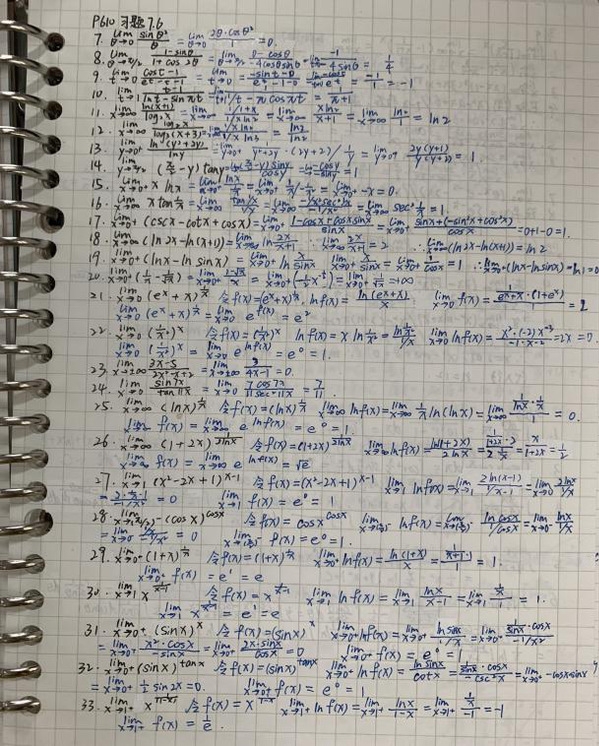 P610 习题 7.6
7. lim θ→0 sinθ²/θ = lim θ→0 2θ·cosθ²/1 = 0.
8. lim θ→π/2 (1-sinθ)/(1+cos2θ) = 1/4
9. lim t→0 (cost-1)/(e^t-t-1) = lim t→0 (-sint-0)/(e^t-1-0) = -1/1 = -1
10. lim t→1 = 1/(π+1)
11. lim x→∞ ln(x+1)/log₂x = lim x→∞ = lim x→∞ xln2/(x+1) = lim x→∞ ln2/1 = ln2
12. lim x→∞ log₂x/log₃(x+3) = ln3/ln2
13. lim y→0⁺ ln(y²+2y)/lny = lim y→0⁺ 1/(y²+2y)·(2y+2)/(1/y) = lim y→0⁺ 2y(y+1)/y(y+2) = 1.
14. lim y→π/2 (π/2-y)tany = 1
15. lim x→0⁺ x lnx = lim x→0⁺ lnx/(1/x) = lim x→0⁺ = lim x→0⁺ -x = 0.
16. lim x→∞ x tan 1/x = lim x→∞ = lim x→∞ = lim x→∞ sec² 1/x = 1
17. lim x→0⁺ (cscx-cotx+cosx) = lim x→0⁺ (1-cosx+cosxsinx)/sinx = lim x→0⁺ (sinx+(-sin²x+cos²x))/cosx = 0+1-0=1.
18. lim x→∞ (ln2x-ln(x+1)) = lim x→∞ ln 2x/(x+1) ∵ lim x→∞ 2x/(x+1) = 2 ∴ lim x→∞ (ln2x-ln(x+1)) = ln2
19. lim x→0⁺ (lnx-lnsinx) = lim x→0⁺ ln x/sinx lim x→0⁺ x/sinx = lim x→0⁺ 1/cosx = 1 ∴ lim x→0⁺ (lnx-lnsinx) = ln1=0
20. lim x→0⁺ (1/x-1/√x) = lim x→0⁺ = +∞
21. lim x→0 (e^x+x)^(1/x) 令f(x)=(e^x+x)^(1/x), lnf(x) = ln(e^x+x)/x lim x→0 f(x) = 1/(e^x+x)·(1+e^x)/1 = 2
lim x→0 (e^x+x)^(1/x) = lim x→0 e^f(x) = e²
22. lim x→0 (1/x²)^x 令f(x)=(1/x²)^x lnf(x) = x ln 1/x² = ln 1/x²/(1/x) lim x→0 lnf(x) = x²·(-2)x⁻³/(-1·x⁻²) = 2x = 0.
lim x→0 (1/x²)^x = lim x→0 e^lnf(x) = e⁰ = 1.
23. lim x→±∞ (3x-5)/(2x²-x+2) = lim x→±∞ 3/(4x-1) = 0.
24. lim x→0 sin7x/tan11x = lim x→0 7cos7x/11sec²11x = 7/11
25. lim x→∞ (lnx)^(1/x) 令f(x)=(lnx)^(1/x) lim x→∞ lnf(x) = lim x→∞ 1/x ln(lnx) = lim x→∞ (1/lnx · 1/x)/1 = 0.
lim x→∞ f(x) = lim x→∞ e^lnf(x) = e⁰ = 1.
26. lim x→∞ (1+2x)^(1/2lnx) 令f(x)=(1+2x)^(1/2lnx) lim x→∞ lnf(x) = ln(1+2x)/2lnx = (1/(1+2x)·2)/(2·1/x) = x/(1+2x) = 1/2
lim x→∞ f(x) = lim x→∞ e^lnf(x) = √e
27. lim x→1 (x²-2x+1)^(x-1) 令f(x)=(x²-2x+1)^(x-1) lim x→1 lnf(x) = lim x→1 2ln(x-1)/(1/(x-1)) = lim x→0 2lnx/(1/x)
= 0 lim x→1 f(x) = e⁰ = 1
28. (cosx)^cosx 令f(x) = cosx^cosx lnf(x) = lncosx/(1/cosx) = lim x→0⁺ lnx/(1/x)
= 0 f(x) = e⁰ = 1.
29. lim x→0⁺ (1+x)^(1/x) 令f(x)=(1+x)^(1/x) lim x→0⁺ lnf(x) = ln(1+x)/x = = 1.
lim x→0⁺ f(x) = e¹ = e
30. lim x→1 x^(1/(x-1)) 令f(x) = x^(1/(x-1)) lim x→1 lnf(x) = lim x→1 lnx/(x-1) = lim x→1 (1/x)/1 = 1.
lim x→1 x^(1/(x-1)) = e¹ = e
31. lim x→0⁺ (sinx)^x 令f(x)=(sinx)^x lim x→0⁺ lnf(x) = lim x→0⁺ lnsinx/(1/x) = lim x→0⁺ (1/sinx·cosx)/(-1/x²)
= lim x→0⁺ x²·cosx/-sinx = lim x→0⁺ = 0 lim x→0⁺ f(x) = e⁰ = 1
32. lim x→0⁺ (sinx)^tanx 令f(x)=(sinx)^tanx lim x→0⁺ lnf(x) = lnsinx/cotx = (1/sinx·cosx)/-csc²x = lim x→0⁺ -cosxsinx
= lim x→0⁺ 1/2 sin2x = 0. lim x→0⁺ f(x) = e⁰ = 1
33. lim x→1⁺ x^(1/(1-x)) 令f(x) = x^(1/(1-x)) lim x→1⁺ lnf(x) = lim x→1⁺ lnx/(1-x) = lim x→1⁺ (1/x)/-1 = -1
lim x→1⁺ f(x) = 1/e.